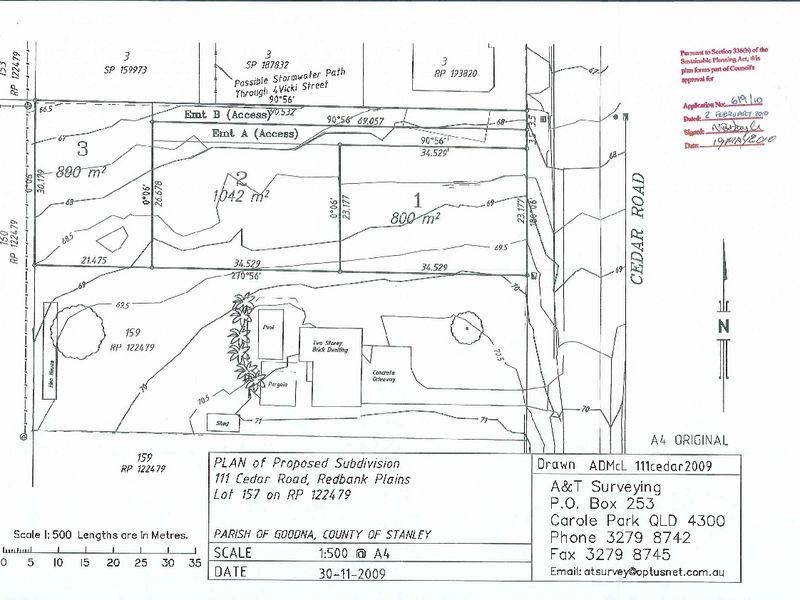 3
SP 159973
3
SP 187832
Possible Stormwater Path
Through 4Vicki Street
90°56'
3
RP 193820
153
RP 122479
Pursuant to Section 336(b) of the
Sustainable Planning Act, this
plan forms part of Council's
approval for
Application No: 619/10
Dated: 2 FEBRUARY 2010
Signed:
Date: 19 MAY 2010
67
66.5
67
Emt B (Access)
90°56' 69.057
68
3.5
Emt A (Access)
90°56'
34.529
3
800 m²
30.179
0°06'
68
68.5
0°06'
26.678
2
1042 m²
0°06'
23.177
1
800 m²
69
23.177
180°06'
69.5
150
RP 122479
21.475
34.529
270°56'
34.529
CEDAR ROAD
69
69
69.5
70
159
RP 122479
Hen House
70
70.5
Pool
Pergola
Shed
Two Storey
Brick Dwelling
Concrete
Driveway
70.5
71
71
70
N
A4 ORIGINAL
159
RP 122479
PLAN of Proposed Subdivision
111 Cedar Road, Redbank Plains
Lot 157 on RP 122479
PARISH OF GOODNA, COUNTY OF STANLEY
SCALE 1:500 @ A4
DATE 30-11-2009
Drawn ADMcL 111cedar2009
A&T Surveying
P.O. Box 253
Carole Park QLD 4300
Phone 3279 8742
Fax 3279 8745
Email: atsurvey@optusnet.com.au
Scale 1:500 Lengths are in Metres.
0 5 10 15 20 25 30 35